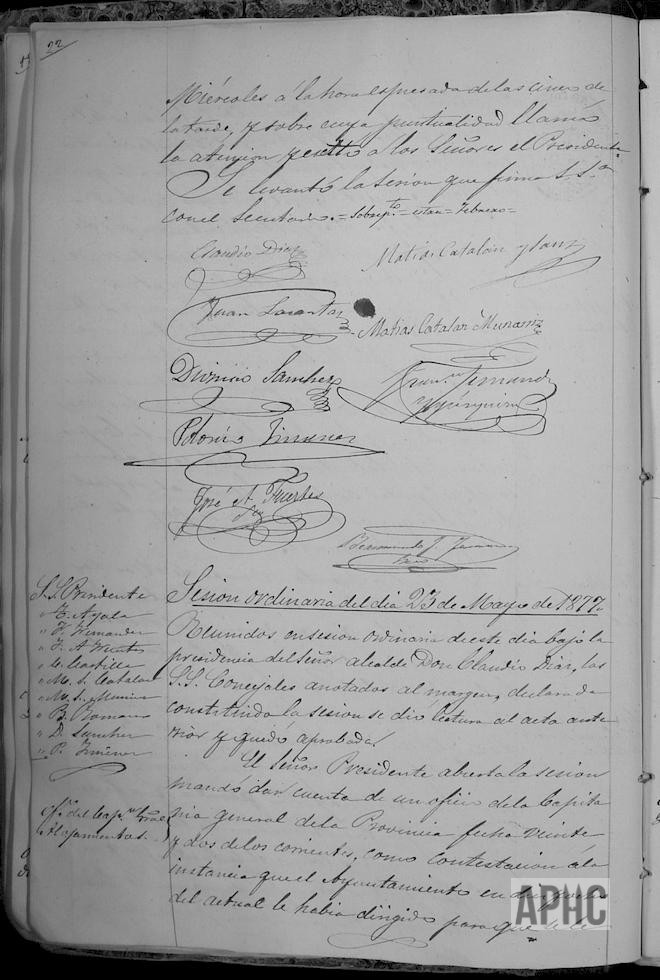 22
Miércoles á la hora espresada de las cinco de
la tarde, y sobre cuya puntualidad llamó
la atencion á los Señores el Presidente
Se levantó la sesion que firma S.Sª
con el Secretario.= Sobrepto = = Febrero =
Claudio Diaz
Matias Catalán y Sanz
Juan
Matias Catalan Munarriz
Dionicio Sanchez
Fernandez
Yzquierdo
Petronio Jimenez
José A. Fuertes
Bermundo J.
S.S. Presidente
" Z. Ayala
" F. Fernandez
" J. A. Fuertes
" C. Castilla
" M. S. Catalan
" M. S.
" B. Romano
" D. Sanchez
" P. Jimenez
Sesion ordinaria del dia 23 de Mayo de 1877.
Reunidos en sesion ordinaria de este dia bajo la
presidencia del Señor alcalde Don Claudio Diaz, los
S.S. Concejales anotados al margen, declarada
constituida la sesion se dió lectura al acta ante
rior y quedó aprobada.
El Señor Presidente abierta la sesion
mandó dar cuenta de un oficio de la Capita
nia general de la Provincia fecha veinte
y dos de los corrientes, como contestacion á la
instancia que el Ayuntamiento en
del actual le habia dirigido para que se le
Ofº del Capn Gral
Alojamientos.
APHC